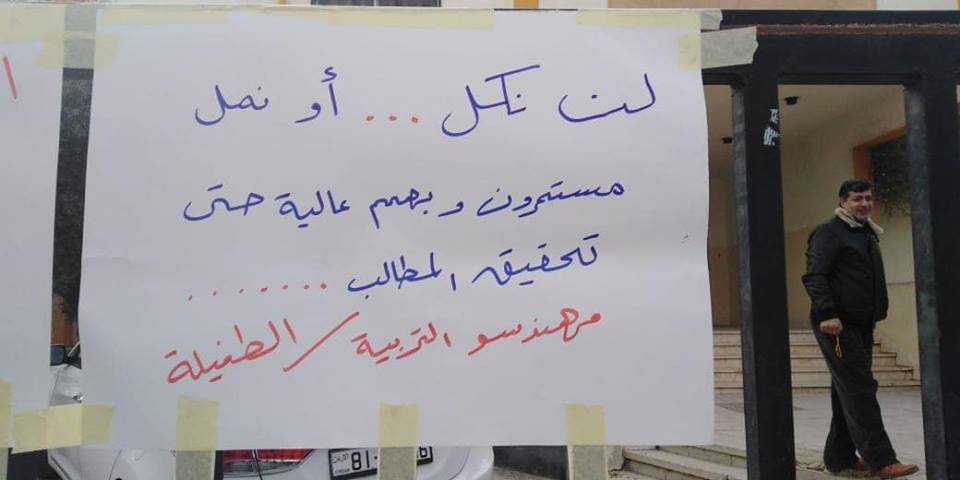 لن نكل ... أو نمل
مستمرون وبهمم عالية حتى
تحقيق المطالب ........
مهندسو التربية / الطفيلة
ا
81-